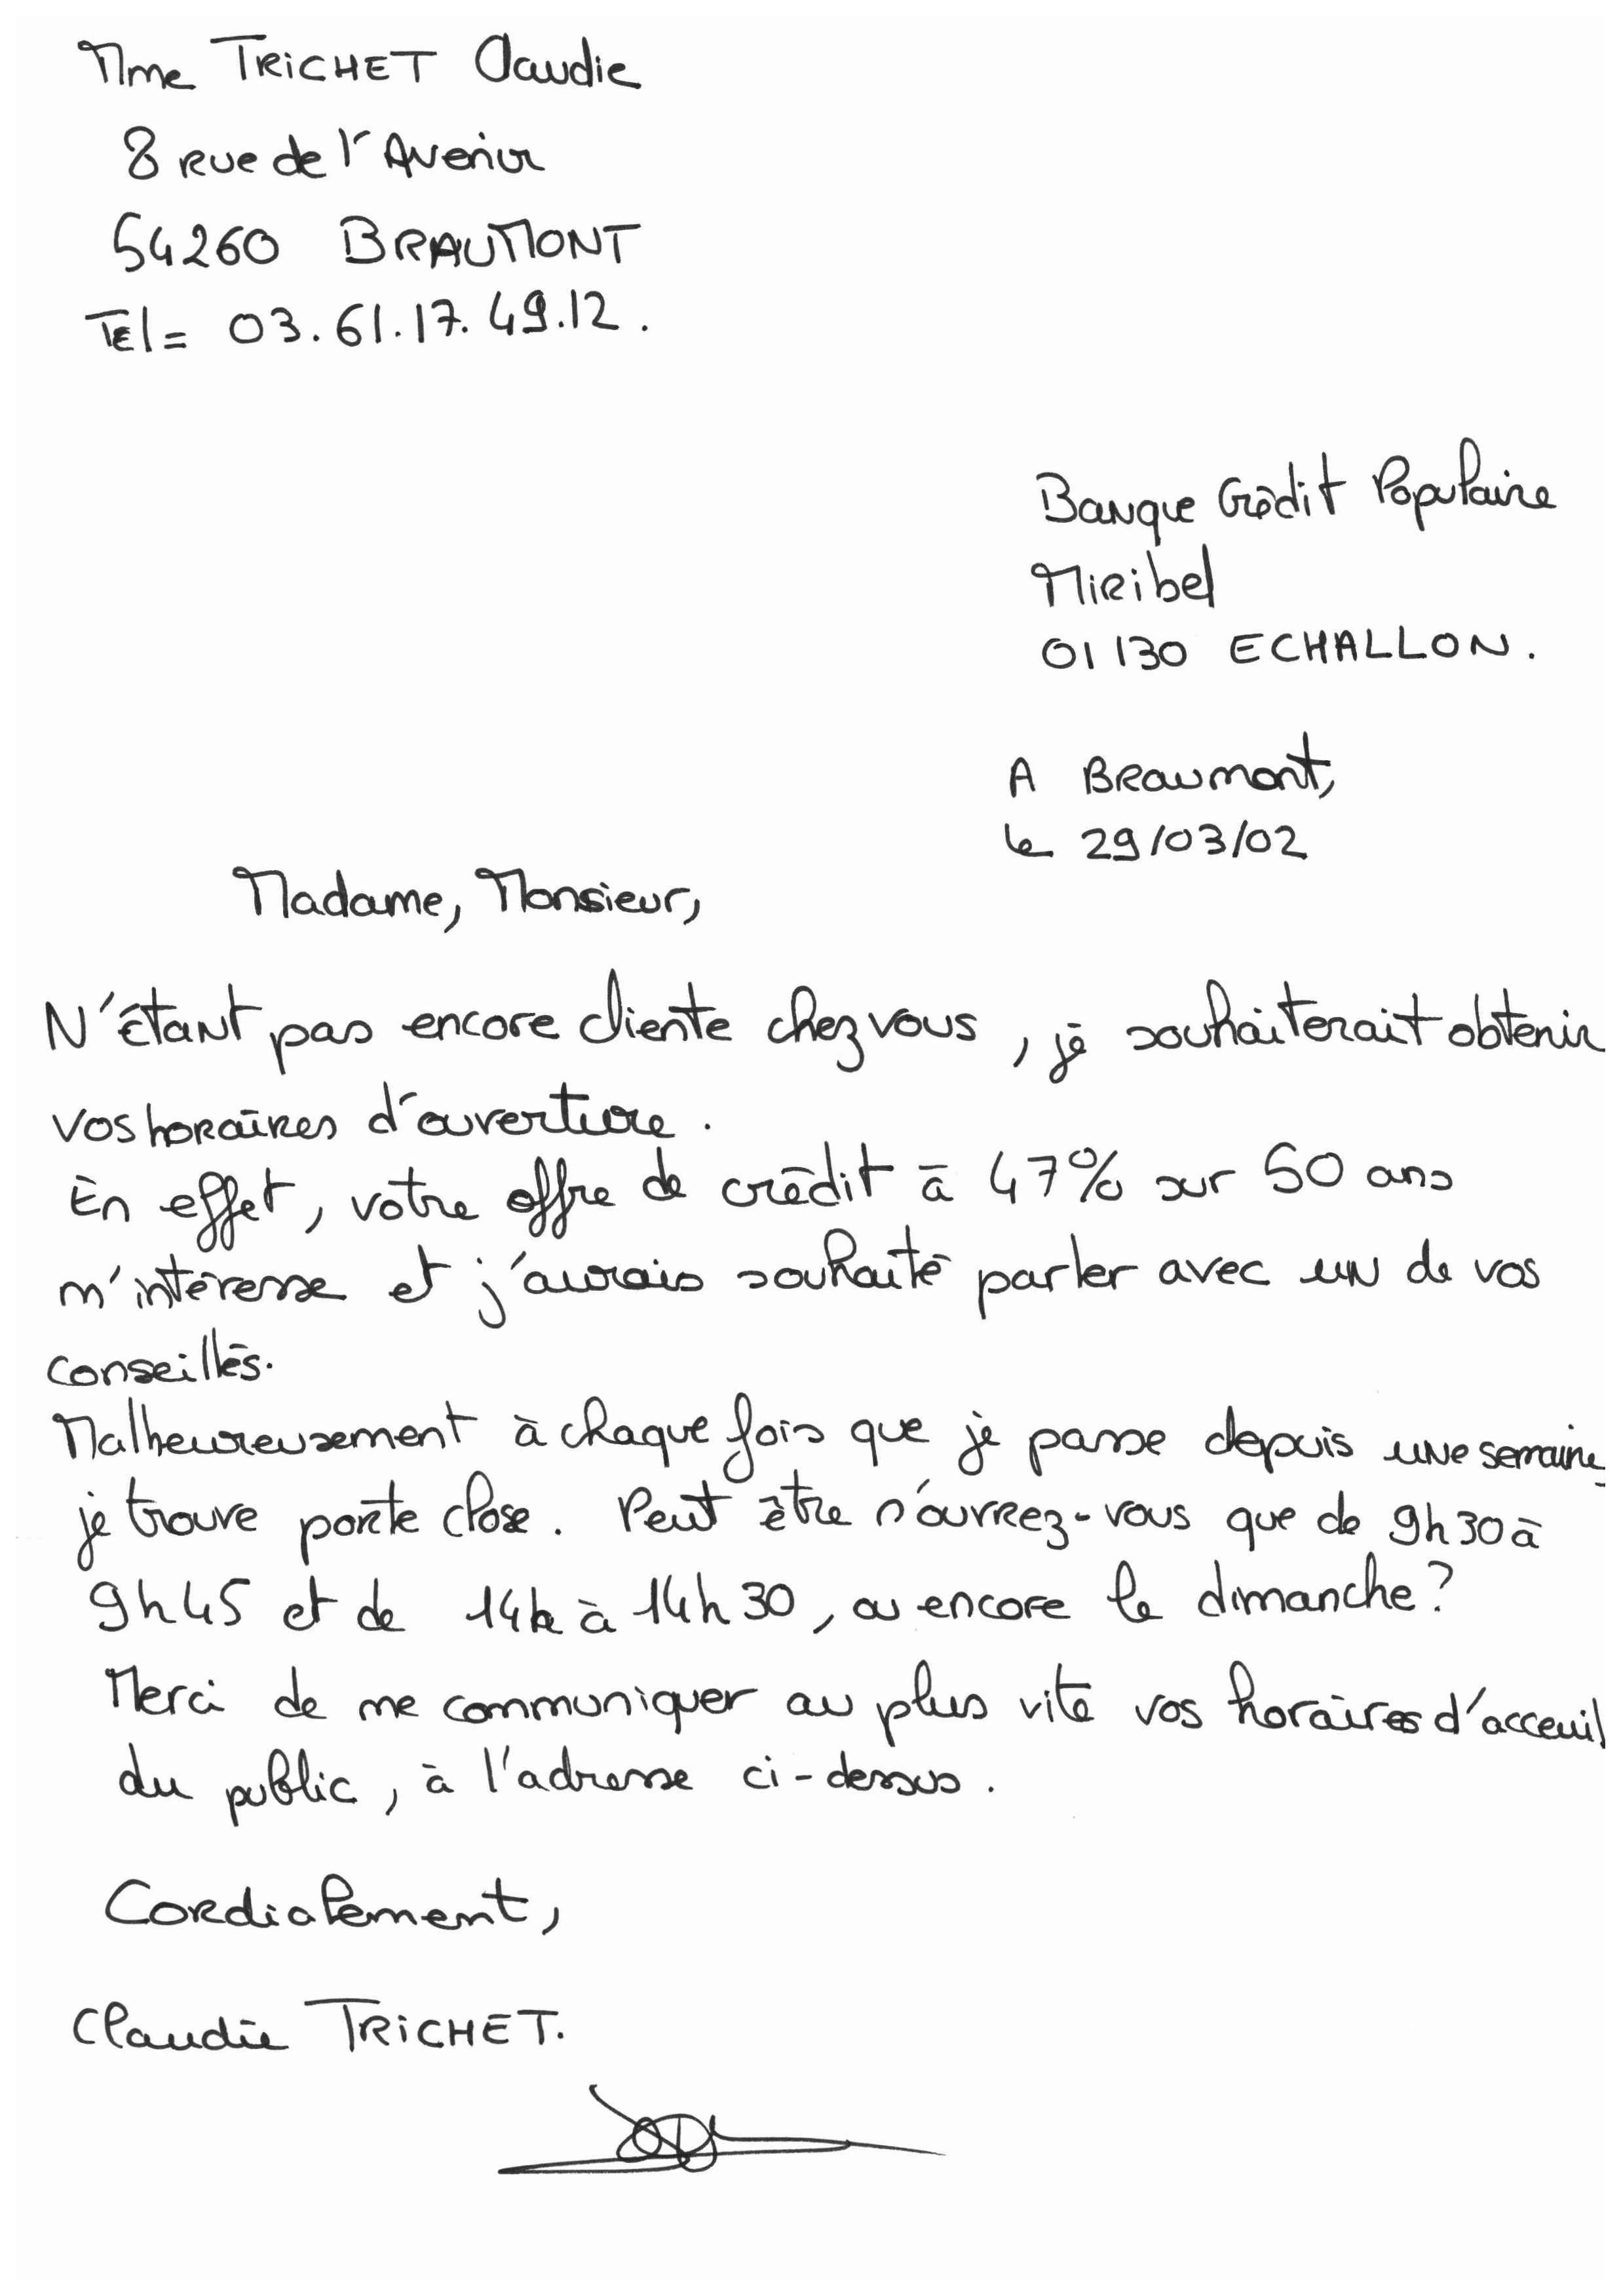 Mme TRICHET Claudie
8 rue de l'Avenir
54260 BRAUMONT
Tel = 03.61.17.49.12.
Banque Crédit Populaire
Miribel
01130 ECHALLON.
A Braumont,
le 29/03/02
Madame, Monsieur,
N'étant pas encore cliente chez vous, je souhaiterait obtenir
vos horaires d'ouverture.
En effet, votre offre de crédit à 47% sur 50 ans
m'intéresse et j'aurais souhaité parler avec un de vos
conseillés.
Malheureusement à chaque fois que je passe depuis une semaine,
je trouve porte close. Peut être n'ouvrez-vous que de 9h30 à
9h45 et de 14h à 14h30, ou encore le dimanche?
Merci de me communiquer au plus vite vos horaires d'acceuil
du public, à l'adresse ci-dessus.
Cordialement,
Claudie TRICHET.